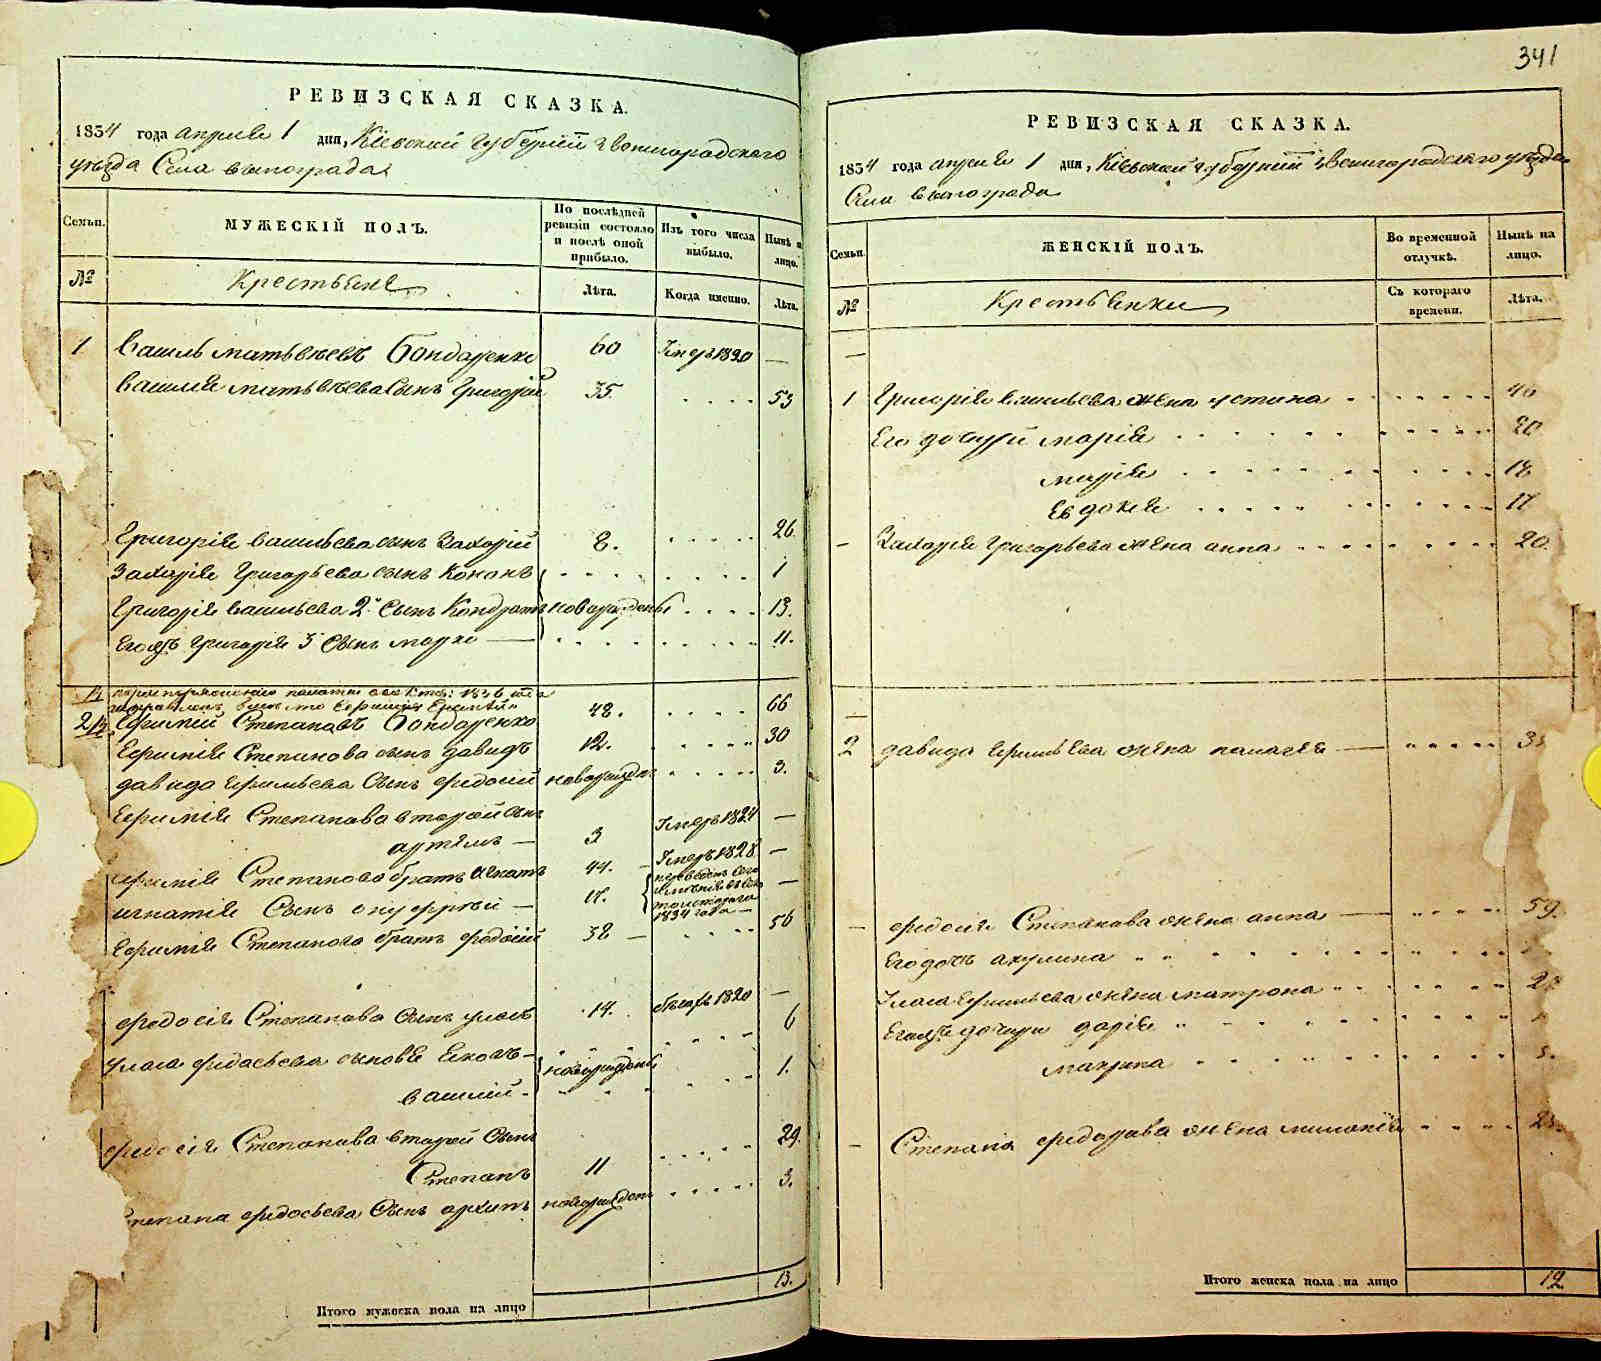 РЕВИЗСКАЯ СКАЗКА.
1834 года апреля 1 дня, Кіевской губерніи звенигородского
уезда Села винограда
Семьи.
МУЖЕСКІЙ ПОЛЪ.
По послѣдней ревизіи состояло и послѣ оной прибыло.
Изъ того числа выбыло.
Нынѣ на лицо.
№
Крестьяне
Лѣта.
Когда именно.
Лѣта.
1 Василь матвѣевъ Бондаренко 60 Умеръ 1820 —
Василия матвѣева Сынъ Григорій 35 53
Григорія васильева сынъ Захарій 8. 26
Захарія Григорьева сынъ Кононъ 1
Григорія васильева 2й Сынъ Кондратъ новорожденъ 13.
Егожъ Григорія 3 Сынъ марко — 11.
2 Ефимій Степановъ Бондаренко 48. 66
Ефимія Степанова сынъ давидъ 12. 30
давида Ефимьева Сынъ федосій новорожден 3.
Ефимія Степанова второй сынъ
артемъ — 3 Умеръ 1824 —
Ефимія Степанова братъ игнатъ 44. Умеръ 1828 —
игнатія Сынъ онуфрій — 17. 1834 года —
Ефимія Степанова братъ федосій 38 — 56
федосія Степанова Сынъ уласъ 14. бѣжалъ 1820 —
уласа федосьева сыновя 6
василій новорожденъ 1.
федосія Степанова второй Сынъ
Степанъ 11 29.
Степана федосьева Сынъ архипъ новорожден 3.
Итого мужеска пола на лицо 13.
341
РЕВИЗСКАЯ СКАЗКА.
1834 года апреля 1 дня, Кіевской губерніи звенигородского уезда
Села винограда
Семьи.
ЖЕНСКІЙ ПОЛЪ.
Во временной отлучкѣ.
Нынѣ на лицо.
№
Крестьянки
Съ котораго времени.
Лѣта.
1 Григорія васильева жена устина
Его дочери марія 20
марія 18
Евдокія 17
Захарія Григорьева жена анна 20
2 давида Ефимьева жена палагея
федосія Степанова жена анна 59.
Его дочь акулина
Уласа жена матрона
Егожъ дочери дарія
макрина
Степана жена
Итого женска пола на лицо 12